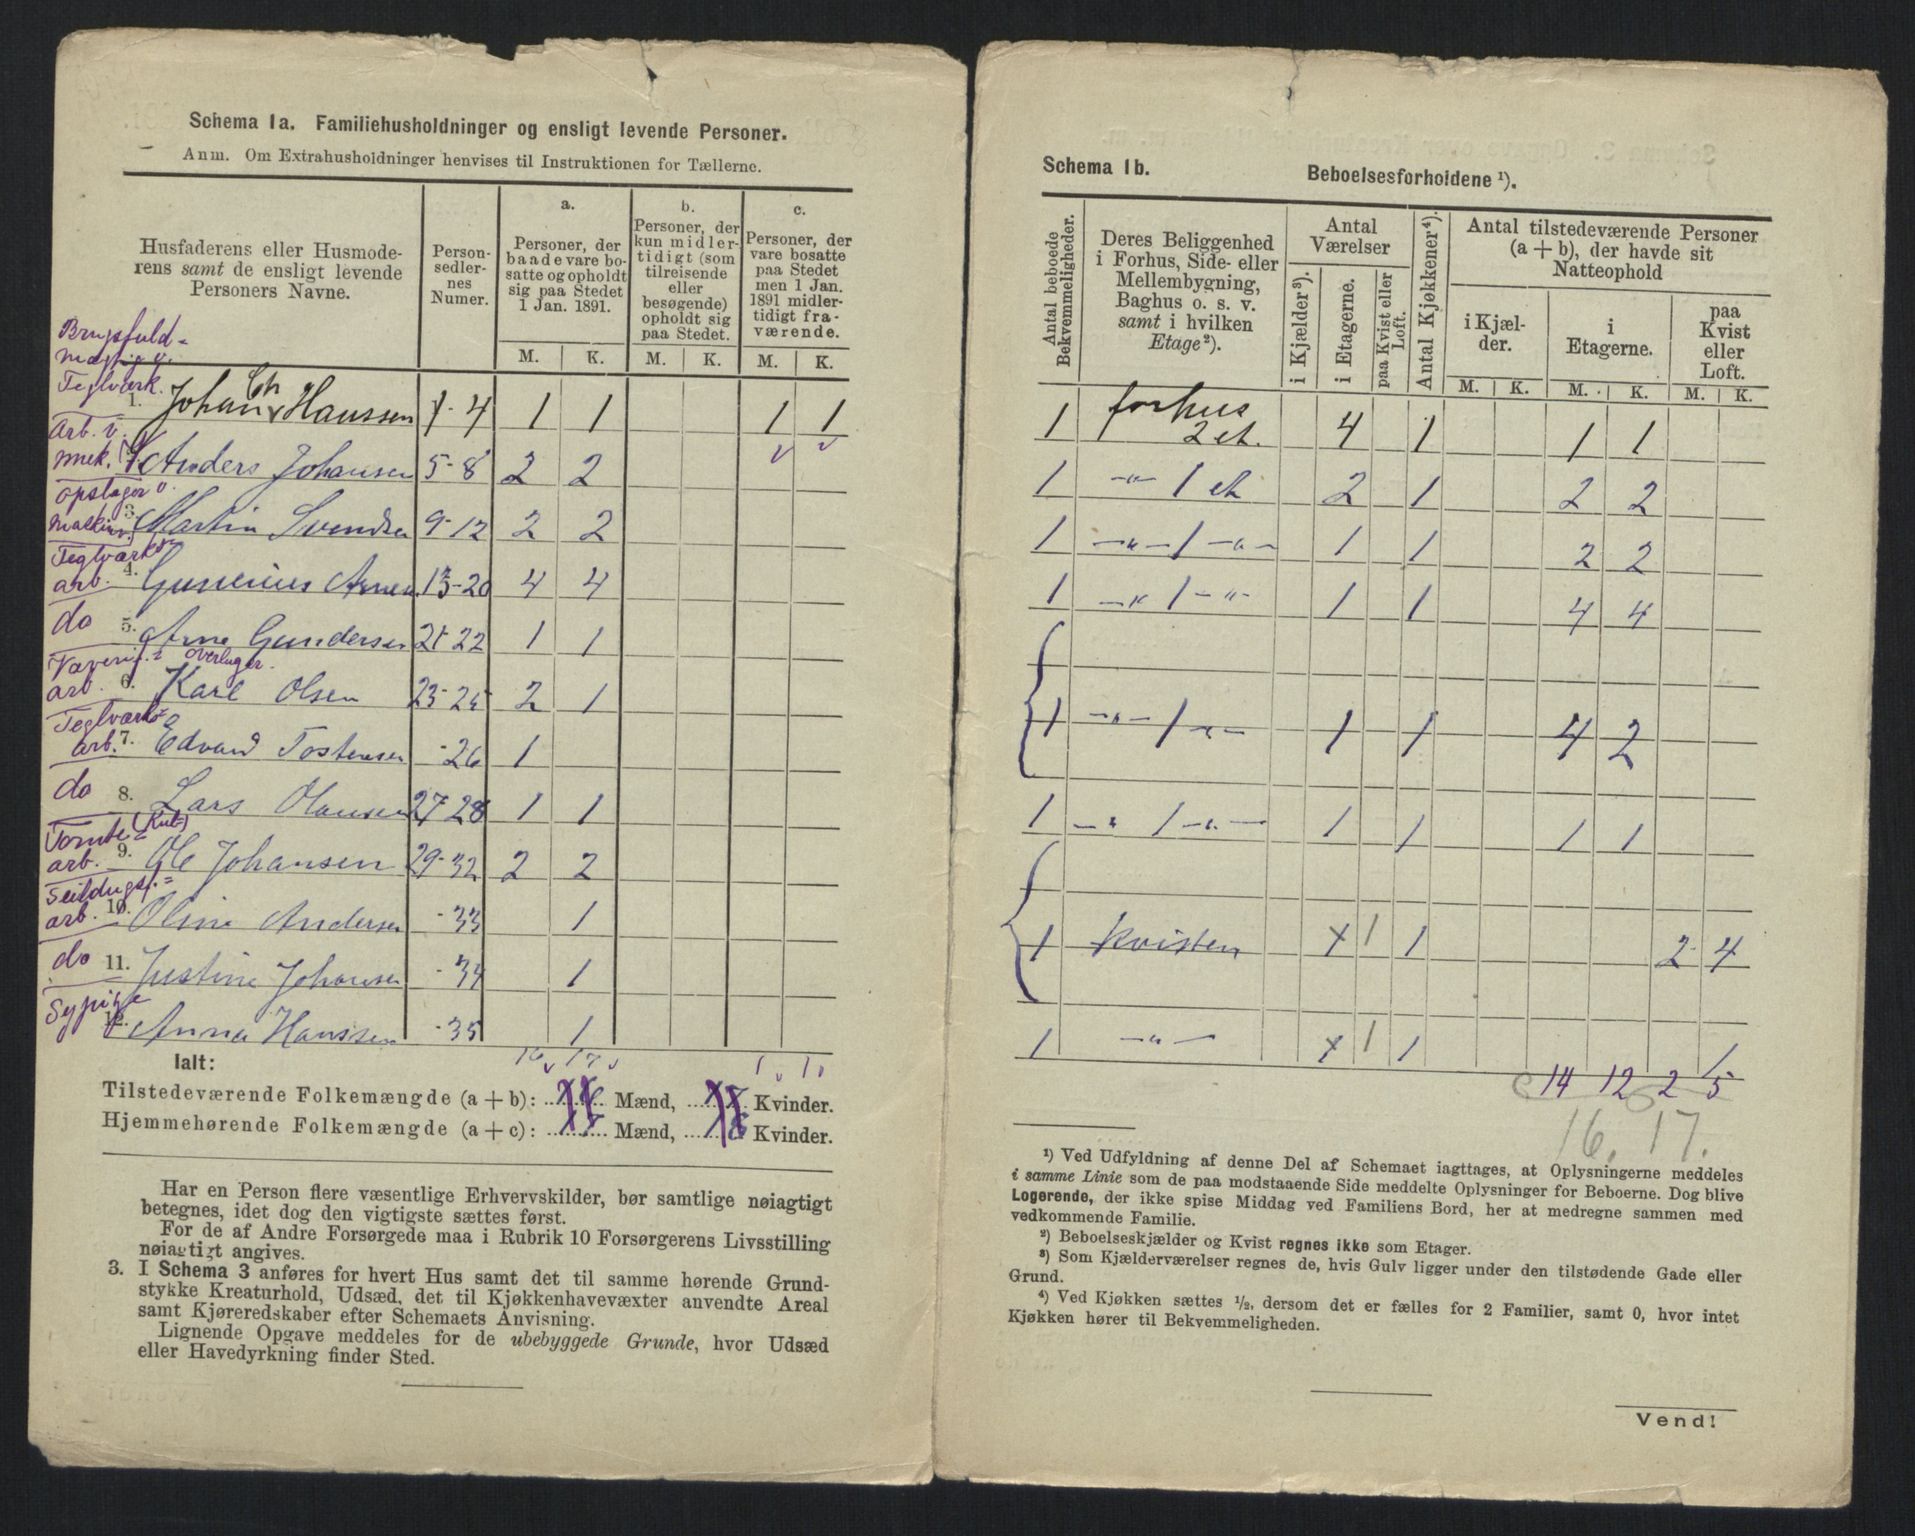 Schema 1a. Familiehusholdninger og ensligt levende Personer.
Anm. Om Extrahusholdninger henvises til Instruktionen for Tællerne.
Husfaderens eller Husmode-
rens samt de ensligt levende
Personers Navne.
Person-
sedler-
nes
Numer.
a.
Personer, der
baade vare bo-
satte og opholdt
sig paa Stedet
1 Jan. 1891.
b.
Personer, der
kun midler-
tidigt (som
tilreisende
eller
besøgende)
opholdt sig
paa Stedet.
c.
Personer, der
vare bosatte
paa Stedet
men 1 Jan.
1891 midler-
tidigt fra-
værende.
M. K. M. K. M. K.
Teglværk.
1. Johan Chr Hanssen 1-4 1 1 1 1
Arb. v.
mek. Anders Johansen 5-8 2 2
3. Martin Svendsen 9-12 2 2
Teglværks
arb. 4. Gunerius Arnesen 13-20 4 4
do 5. Arne Gundersen 21-22 1 1
arb. 6. Karl Olsen 23-25 2 1
Teglværks-
arb. 7. Edvard Tostensen -26 1
do 8. Lars Olausen 27-28 1 1
Tomte-
arb. 9. Ole Johansen 29-32 2 2
Seildugsf.=
arb. 10. Oline Andersen -33 1
do 11. Justine Johansen -34 1
Sypige
12. Anna Hanssen -35 1
Ialt: 16 17 1 1
Tilstedeværende Folkemængde (a + b): Mænd, Kvinder.
Hjemmehørende Folkemængde (a + c): Mænd, Kvinder.
Har en Person flere væsentlige Erhvervskilder, bør samtlige nøiagtigt
betegnes, idet dog den vigtigste sættes først.
For de af Andre Forsørgede maa i Rubrik 10 Forsørgerens Livsstilling
nøiagtigt angives.
3. I Schema 3 anføres for hvert Hus samt det til samme hørende Grund-
stykke Kreaturhold, Udsæd, det til Kjøkkenhavevæxter anvendte Areal
samt Kjøreredskaber efter Schemaets Anvisning.
Lignende Opgave meddeles for de ubebyggede Grunde, hvor Udsæd
eller Havedyrkning finder Sted.
Schema 1b. Beboelsesforholdene ¹).
Antal beboede
Bekvemmeligheder.
Deres Beliggenhed
i Forhus, Side- eller
Mellembygning,
Baghus o. s. v.
samt i hvilken
Etage²).
Antal
Værelser
i Kjælder³).
i Etagerne.
paa Kvist eller
Loft.
Antal Kjøkkener⁴).
Antal tilstedeværende Personer
(a + b), der havde sit
Natteophold
i Kjæl-
der.
i
Etagerne.
paa
Kvist
eller
Loft.
M. K. M. K. M. K.
1 forhus
2 et. 4 1 1 1
1 -"- 1 et 2 1 2 2
1 -"- 1 -"- 1 1 2 2
1 -"- 1 -"- 1 1 4 4
1 -"- 1 -"- 1 1 4 2
1 -"- 1 -"- 1 1 1 1
1 Kvisten 1 1 2 4
1 -"- 1 1 1
14 12 2 5
16. 17.
¹) Ved Udfyldning af denne Del af Schemaet iagttages, at Oplysningerne meddeles
i samme Linie som de paa modstaaende Side meddelte Oplysninger for Beboerne. Dog blive
Logerende, der ikke spise Middag ved Familiens Bord, her at medregne sammen med
vedkommende Familie.
²) Beboelseskjælder og Kvist regnes ikke som Etager.
³) Som Kjælderværelser regnes de, hvis Gulv ligger under den tilstødende Gade eller
Grund.
⁴) Ved Kjøkken sættes ½, dersom det er fælles for 2 Familier, samt 0, hvor intet
Kjøkken hører til Bekvemmeligheden.
Vend!